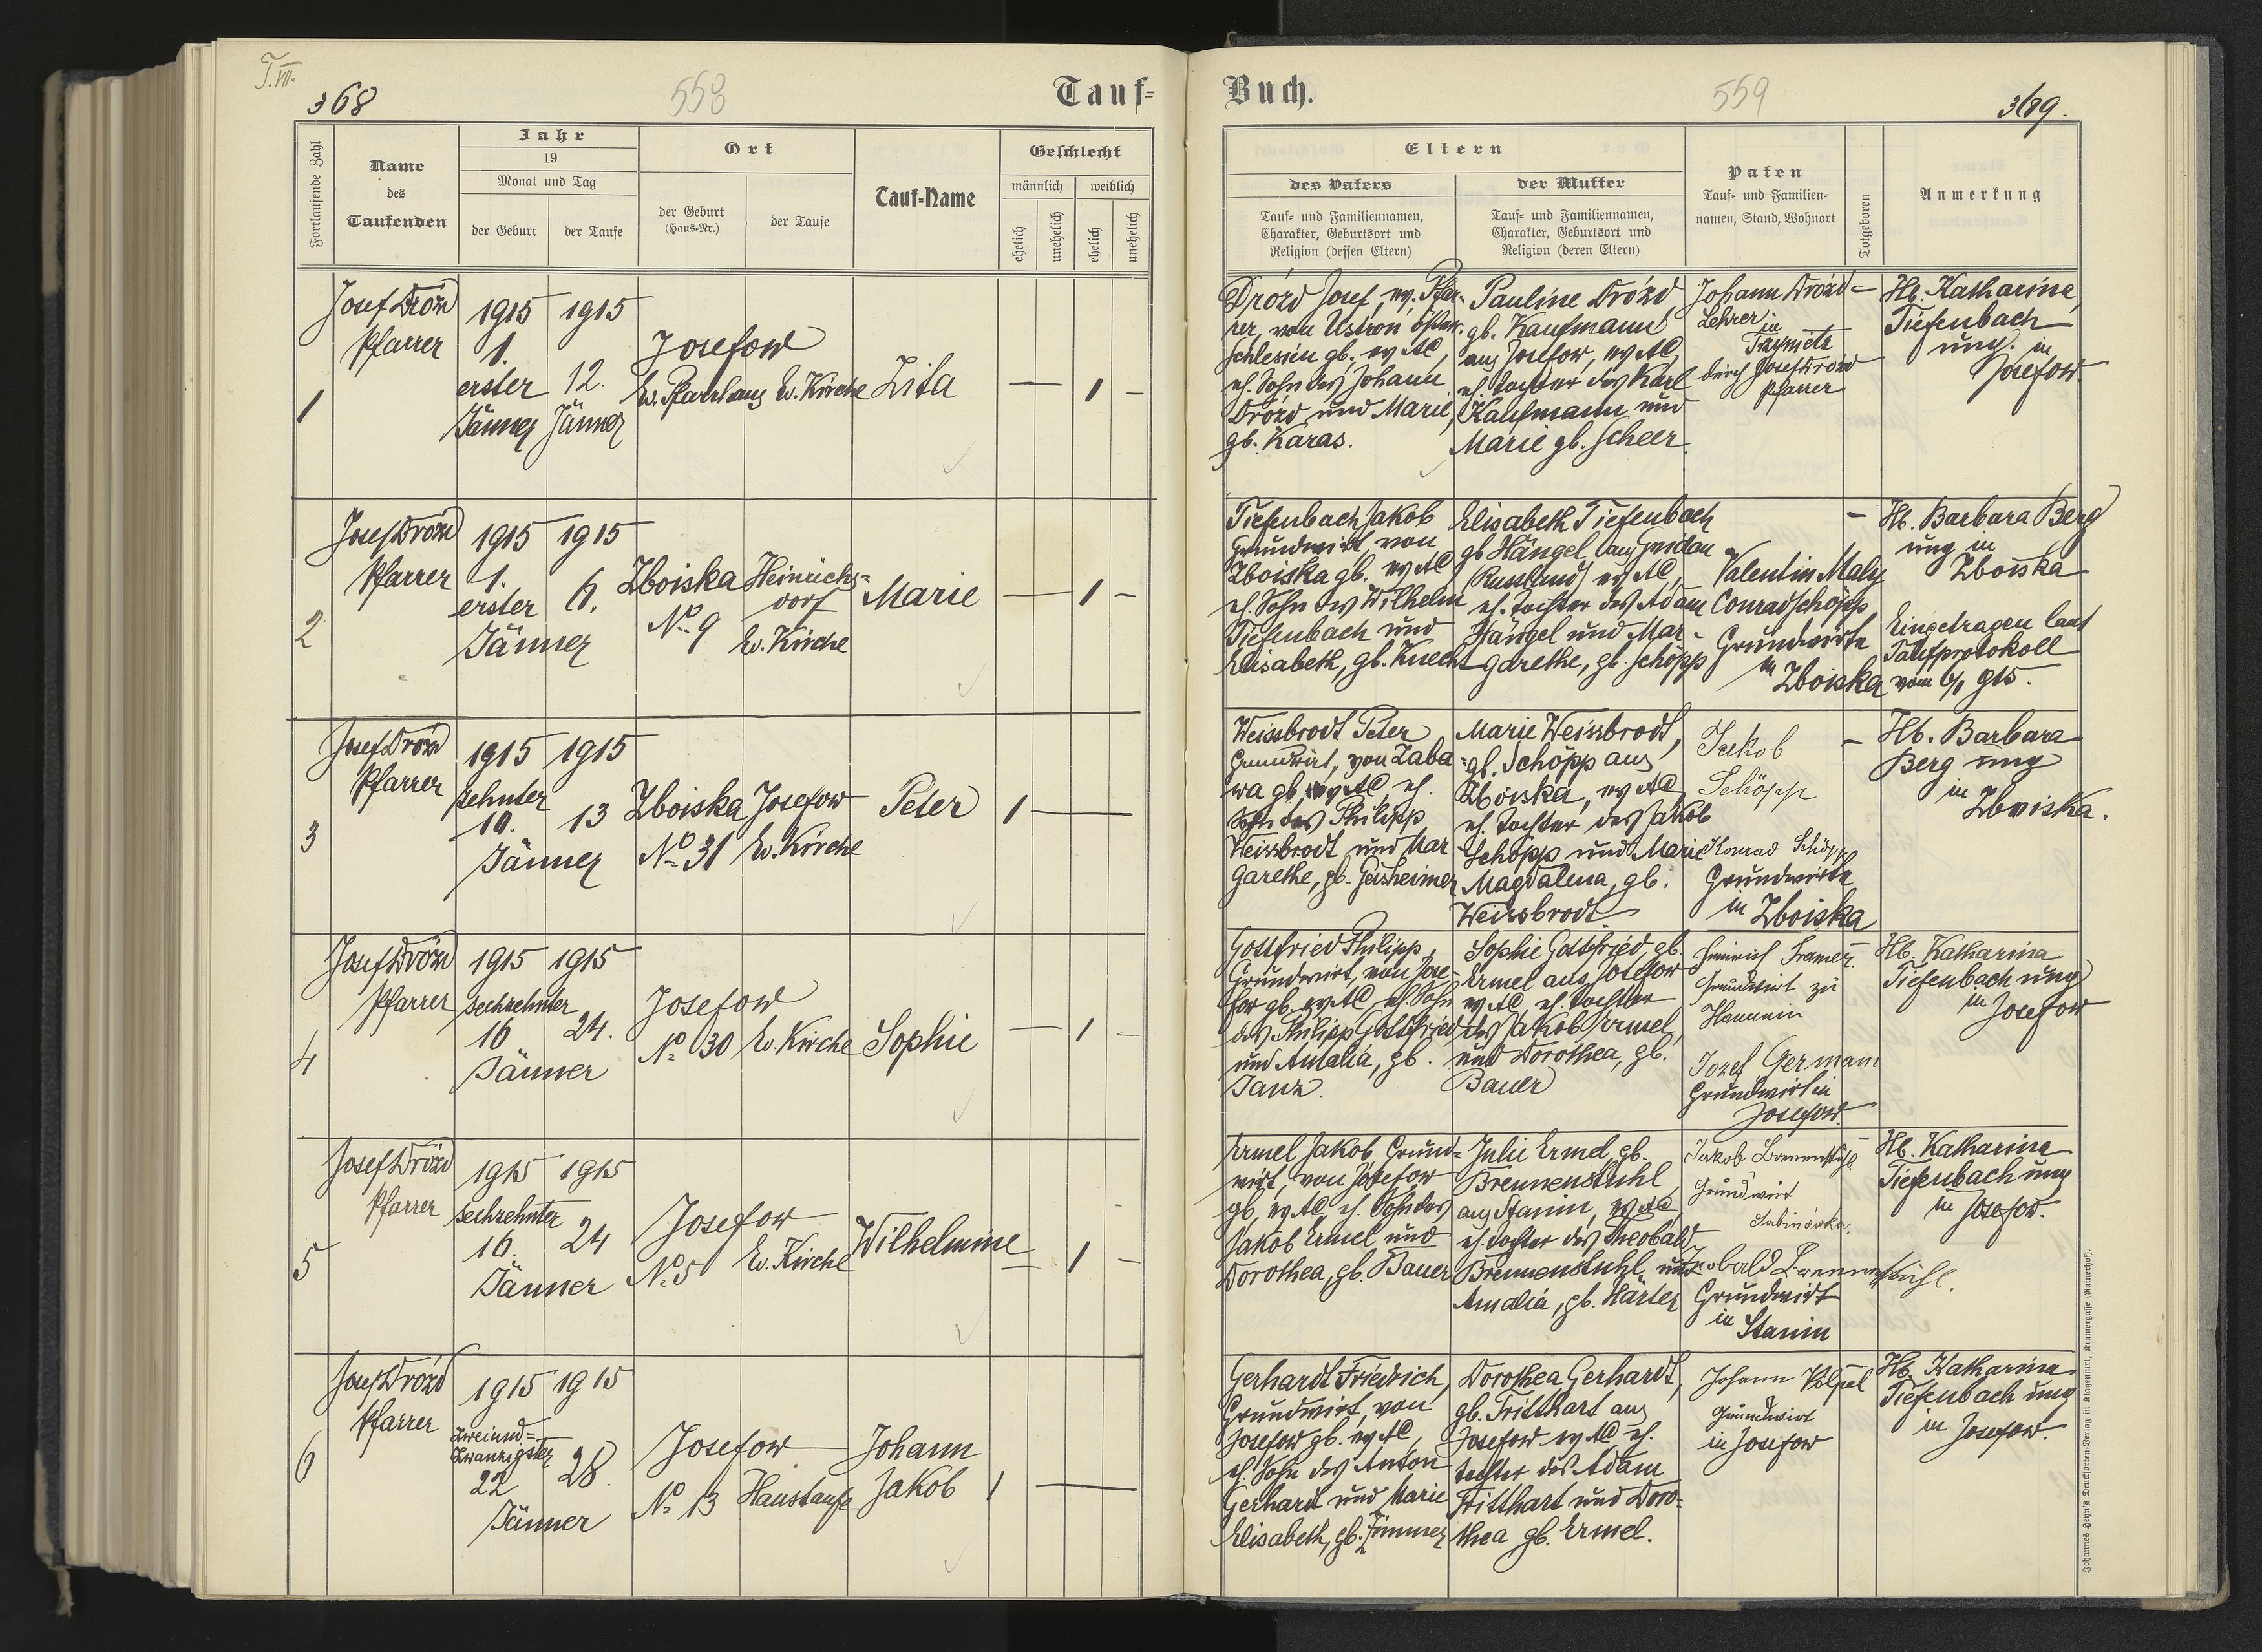 T. III.
368
558
Tauf=
Fortlaufende Zahl
Name
des
Taufenden
Jahr
19
Monat und Tag
der Geburt
der Taufe
Ort
der Geburt
(Haus=Nr.)
der Taufe
Tauf=Name
Geschlecht
männlich
weiblich
ehelich
unehelich
ehelich
unehelich
1
Josef Drózd
Pfarrer
1915
1.
erster
Jänner
1915
12.
Jänner
Josefow
Ev. Pfarrhaus
Ev. Kirche
Zita
— 1 —
2
Josef Drózd
Pfarrer
1915
1.
erster
Jänner
1915
6.
Zboiska
No 9
Heinrichs=
dorf
Ev. Kirche
Marie
— 1 —
3
Josef Drózd
Pfarrer
1915
zehnter
10.
Jänner
1915
13
Zboiska
No 31
Josefow
Ev. Kirche
Peter
1 —
4
Josef Drózd
Pfarrer
1915
sechzehnter
16
Jänner
1915
24.
Josefow
No 30
Ev. Kirche
Sophie
— 1 —
5
Josef Drózd
Pfarrer
1915
sechzehnter
16.
Jänner
1915
24
Josefow
No 5
Ev. Kirche
Wilhelmine
— 1 —
6
Josef Drózd
Pfarrer
1915
Zweiund=
zwanzigster
22
Jänner
1915
28.
Josefow
No 13
Haustaufe
Johann
Jakob
1 —
Buch.
559
369.
Eltern
des Vaters
Tauf= und Familiennamen,
Charakter, Geburtsort und
Religion (dessen Eltern)
der Mutter
Tauf= und Familiennamen,
Charakter, Geburtsort und
Religion (deren Eltern)
Paten
Tauf= und Familien=
namen, Stand, Wohnort
Totgeboren
Anmerkung
Drózd Josef, ev. Pfar-
rer, von Ustron österr.
Schlesien gb., ev AC,
eh. Sohn des Johann
Drózd und Marie,
gb. Karas.
Pauline Drózd
gb. Kaufmann
aus Josefow, ev AC,
eh. Tochter des Karl
Kaufmann und
Marie gb. Scheer.
Johann Drózd
Lehrer in
durch Josef Drózd
Pfarrer
—
Hb. Katharina
Tiefenbach
ung. in
Josefow
Tiefenbach Jakob
Grundwirt, von
Zboiska gb. ev AC
eh. Sohn des Wilhelm
Tiefenbach und
Elisabeth, gb. Knecht
Elisabeth Tiefenbach
gb Hängel aus
(Russland) ev AC,
eh. Tochter des Adam
Hängel und Mar-
garethe, gb. Schöpp
Valentin Maly
Conrad Schöpp
Grundwirte
in
Zboiska
—
Hb. Barbara Berg
ung in
Zboiska
Eingetragen laut
Taufprotokoll
vom 6/1 915.
Weissbrodt Peter
Grundwirt, von Zaba=
wa gb, ev AC, eh.
Sohn des Philipp
Weissbrodt und Mar
garethe, gb. Geisheimer
Marie Weissbrodt,
gb. Schöpp aus
Zboiska, ev AC,
eh. Tochter des Jakob
Schöpp und Marie
Magdalena, gb.
Weissbrodt
Jakob
Schöpp
Konrad Schöpp
Grundwirte
in Zboiska
—
Hb. Barbara
Berg ung
in
Zboiska.
Gottfried Philipp,
Grundwirt, von Jose-
fow gb. ev AC, eh. Sohn
des Philipp Gottfried
und Amalia, gb.
Janz.
Sophie Gottfried, gb.
Ermel aus Josefow
ev AC, eh. Tochter
des Jakob Ermel,
und Dorothea, gb.
Bauer
Heinrich Kramer
Grundwirt zu
Hanunin
Jozef Germann
Grundwirt in
Josefow.
—
Hb. Katharina
Tiefenbach ung
in
Josefow
Ermel Jakob, Grund=
wirt, von Josefow
gb, ev AC, eh. Sohn des
Jakob Ermel und
Dorothea, gb. Bauer
Julie Ermel, gb.
Brennenstuhl
aus Stanin, ev AC
eh. Tochter des Theobald
Brennenstuhl und
Amalia, gb. Härter
Jakob Brennenstuhl
Grundwirt
Sabinówka.
Teobald Brennenstuhl.
Grundwirt
in
Stanin
—
Hb. Katharina
Tiefenbach ung
in Josefow.
Gerhardt Friedrich,
Grundwirt, von
Josefow gb. ev AC,
eh. Sohn des Anton
Gerhardt und Marie
Elisabeth, gb. Zimmer
Dorothea Gerhardt,
gb. Tritthart aus
Josefow ev AC eh.
Tochter des Adam
Tritthart und Doro=
thea gb. Ermel.
Johann Völpel
Grundwirt
in Josefow
—
Hb. Katharina
Tiefenbach ung
in Josefow.
Johannes Heyn's Drucksorten=Verlag in Klagenfurt, Kramergasse (Rainerhof).